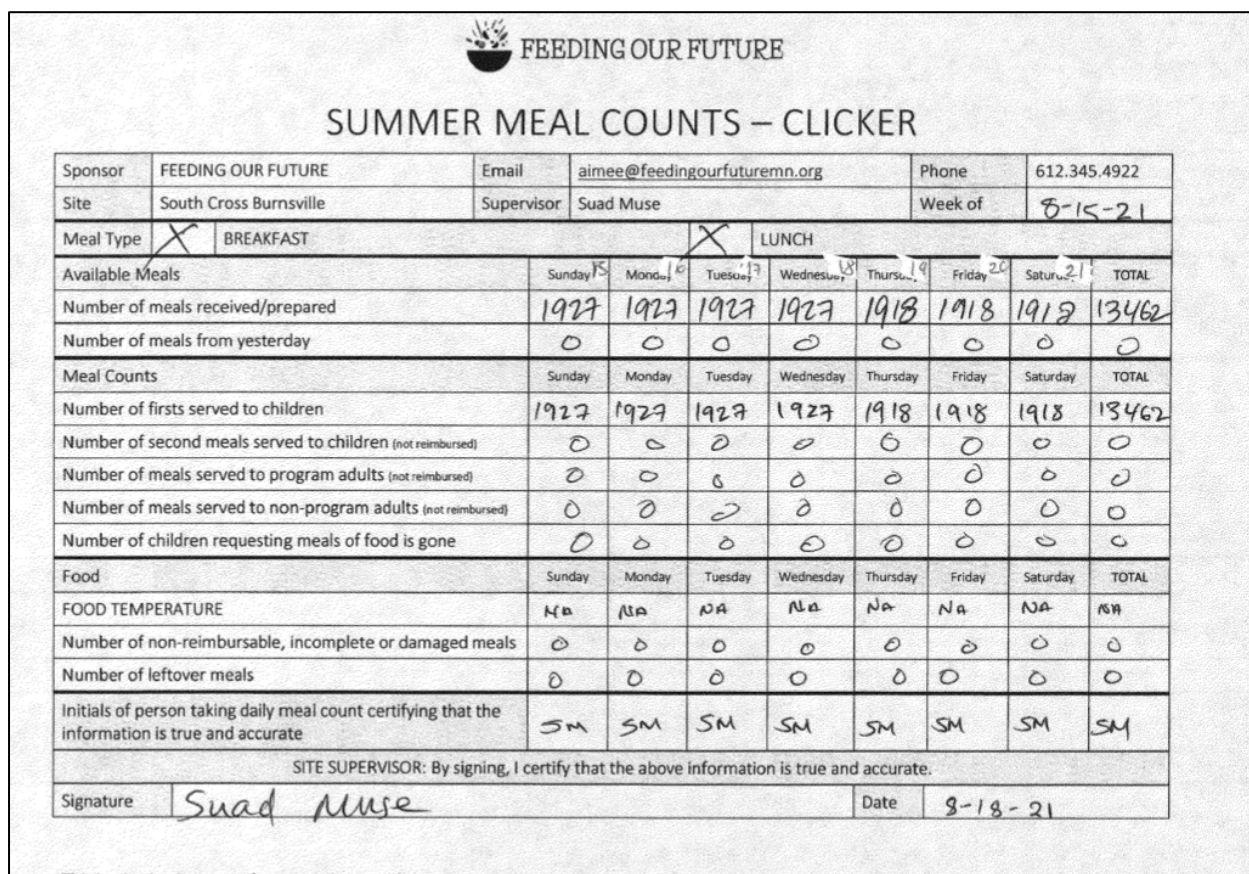 FEEDING OUR FUTURE
SUMMER MEAL COUNTS – CLICKER
Sponsor FEEDING OUR FUTURE Email aimee@feedingourfuturemn.org Phone 612.345.4922
Site South Cross Burnsville Supervisor Suad Muse Week of 8-15-21
Meal Type X BREAKFAST X LUNCH
Available Meals Sunday 15 Monday 16 Tuesday 17 Wednesday 18 Thursday 19 Friday 20 Saturday 21 TOTAL
Number of meals received/prepared 1927 1927 1927 1927 1918 1918 1918 13462
Number of meals from yesterday 0 0 0 0 0 0 0 0
Meal Counts Sunday Monday Tuesday Wednesday Thursday Friday Saturday TOTAL
Number of firsts served to children 1927 1927 1927 1927 1918 1918 1918 13462
Number of second meals served to children (not reimbursed) 0 0 0 0 0 0 0 0
Number of meals served to program adults (not reimbursed) 0 0 0 0 0 0 0 0
Number of meals served to non-program adults (not reimbursed) 0 0 0 0 0 0 0 0
Number of children requesting meals of food is gone 0 0 0 0 0 0 0 0
Food Sunday Monday Tuesday Wednesday Thursday Friday Saturday TOTAL
FOOD TEMPERATURE NA NA NA NA NA NA NA NA
Number of non-reimbursable, incomplete or damaged meals 0 0 0 0 0 0 0 0
Number of leftover meals 0 0 0 0 0 0 0 0
Initials of person taking daily meal count certifying that the
information is true and accurate SM SM SM SM SM SM SM SM
SITE SUPERVISOR: By signing, I certify that the above information is true and accurate.
Signature Suad Muse Date 8-18-21